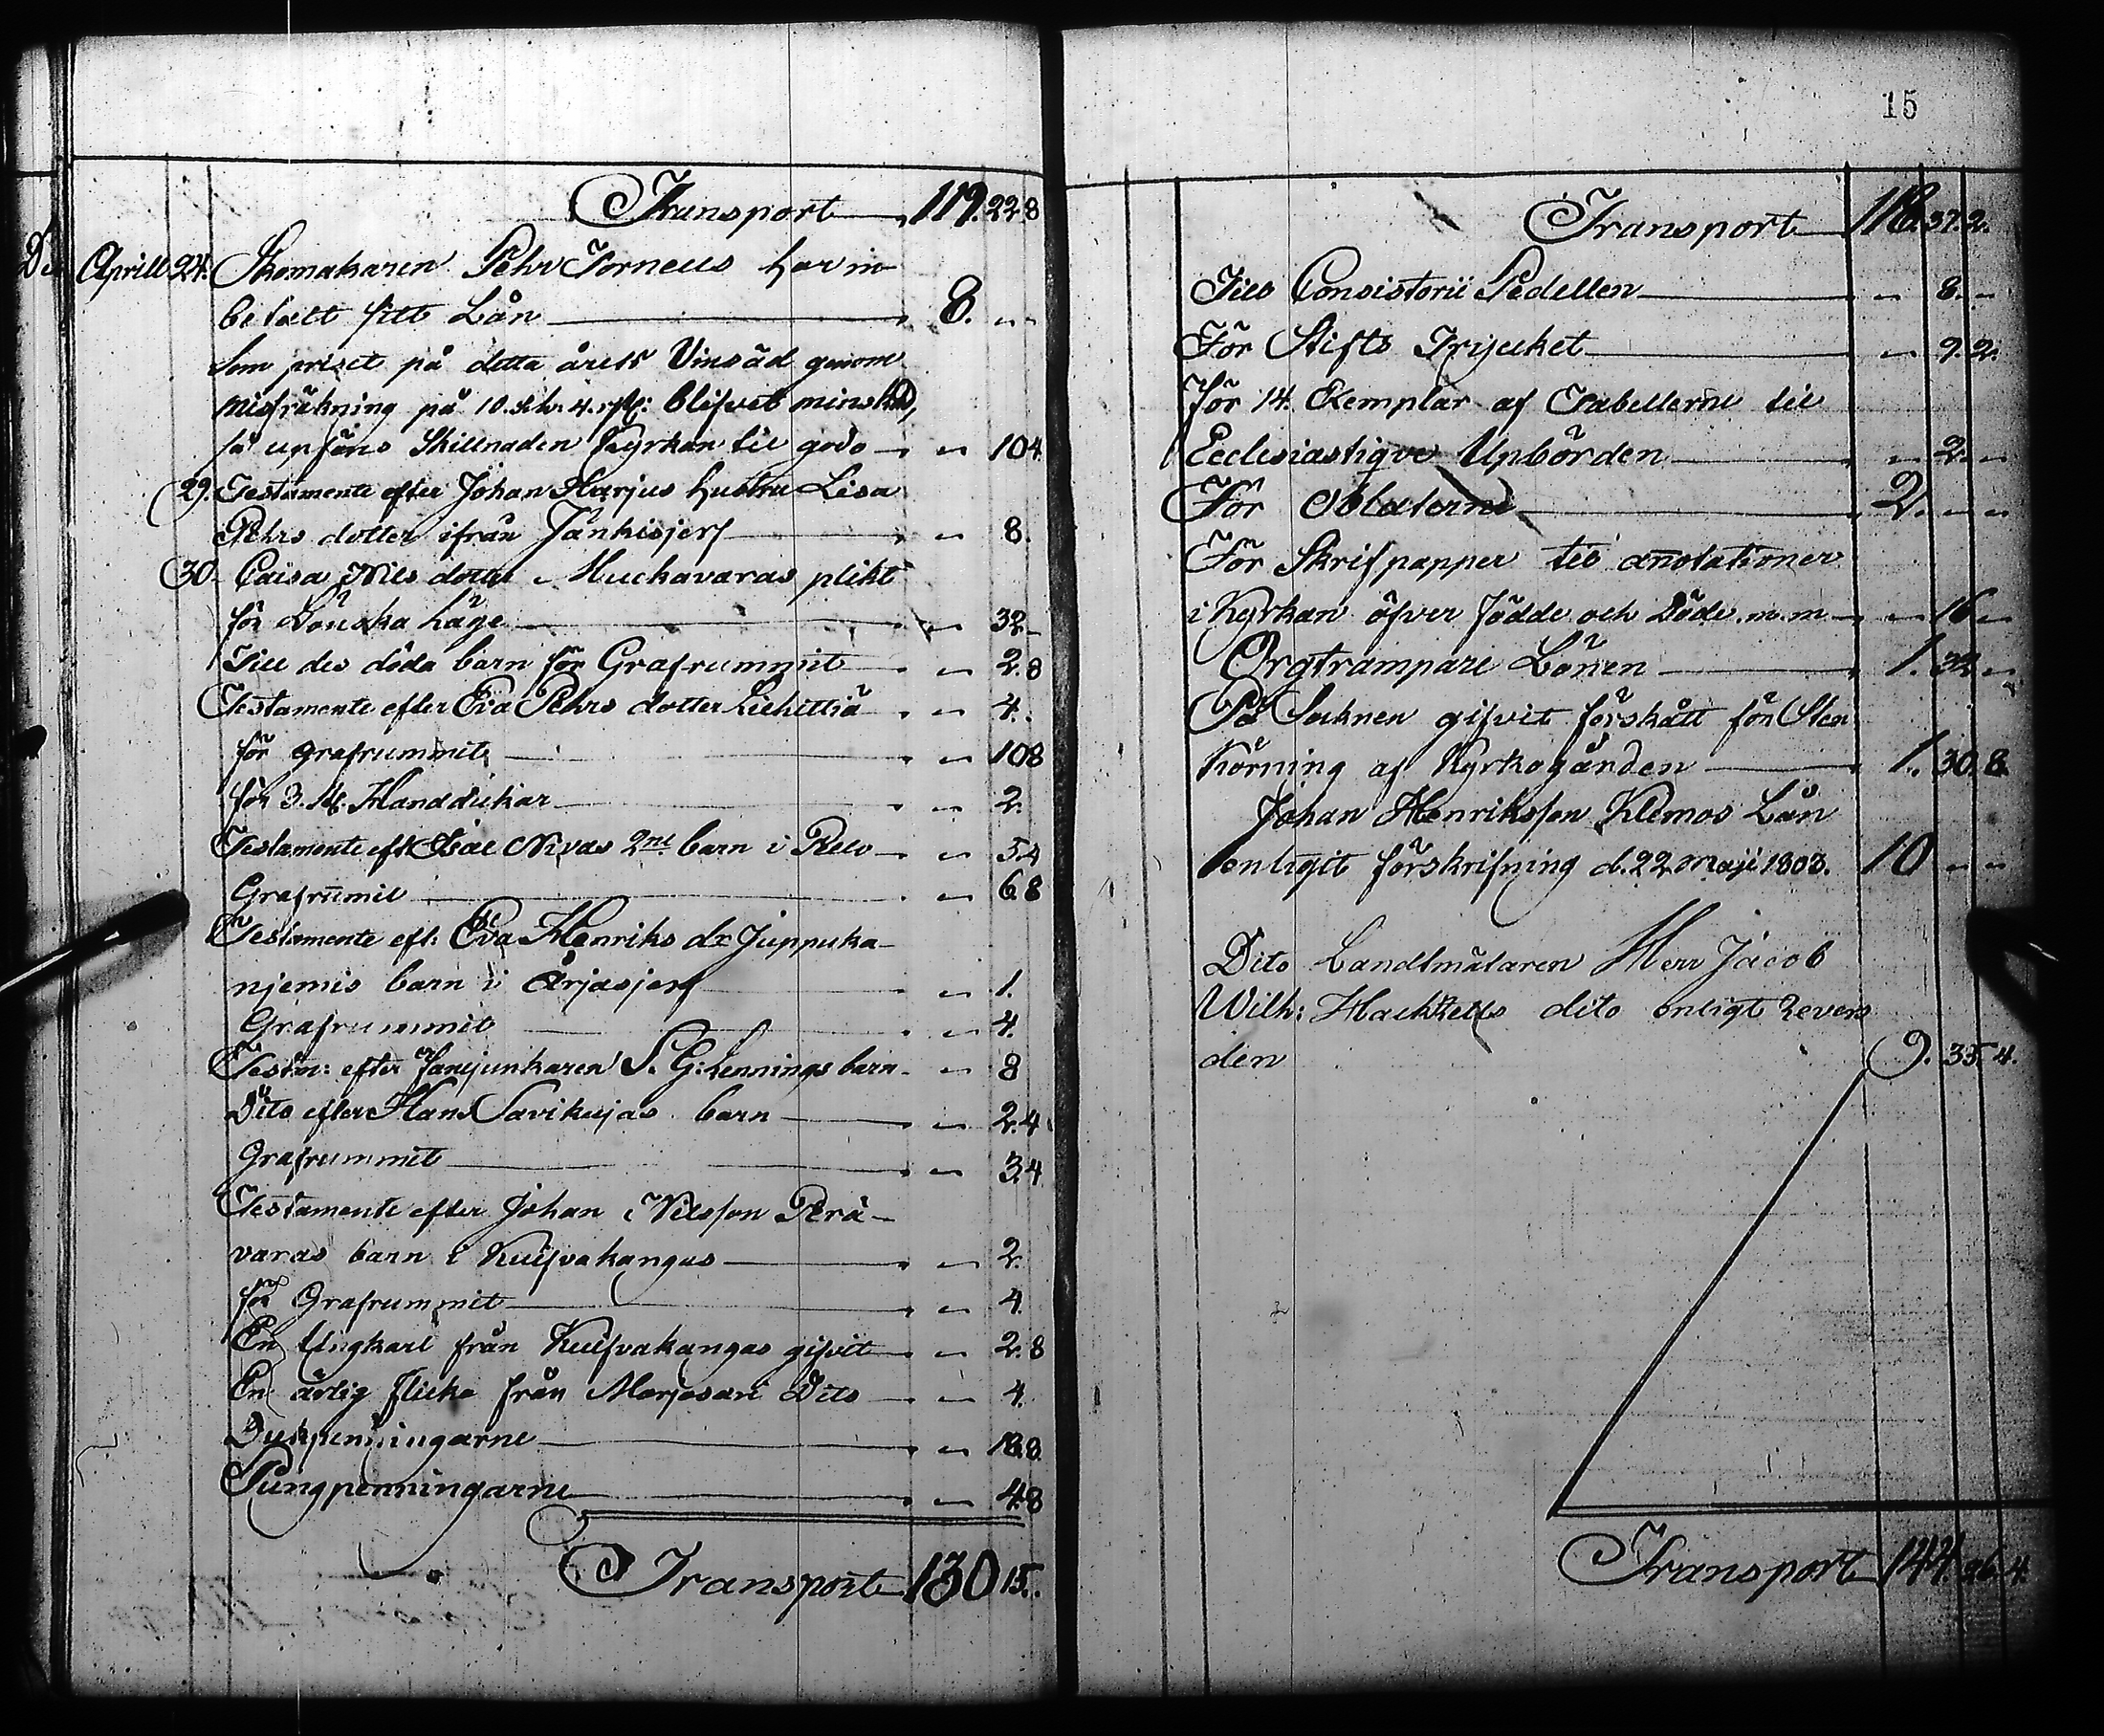 Transport 119.22.8
De Aprill 24. Skomakaren Pehr Torneus har in-
betalt sitt Lån 8. " "
Som priset på detta årets Vinsäd genom
misräkning på 10. blifvet minskad,
så upföres Skillnaden Kyrkan til godo " 10 4
29. Testamente efter Johan Harjus hustru Lisa
Pehrs dotter ifrån Jånkisjerf " 8.
30. Caisa Nils dotter Muckavaras plikt
för Lönska läge " 32 -
Till des döda barn för Grafrummit " 2.8
Testamente efter Eva Pehrs dotter Liehittiä " 4.
för grafrummit " 10 8
för 3. st. Handdukar " 2.
Testamente eft. Isac Nivas 2ne barn i Relo " 5.4
Grafrumit " 6 8
Testamente eft: Eva Henriks dr Juppuka-
njemis barn i Arjasjerf " 1.
Grafrummit " 4.
Testm: efter Fanejunkaren S. G: Lennings barn " 8
Dito efter Hans Savikujas barn " 2.4
Grafrummit " 3.4
Testamente efter Johan Nilsson Perä-
varas barn i Kuifvakangas " 2.
för Grafrummit " 4.
En Ungkarl från Kuifvakangas gifvit " 2.8
En ärlig flicka från Marjosari Dito " 4.
" 18.8
Pungpenningarne " 4.8
Transport 130 15.
15
Transport 118.37.2.
Till Consistorii Pedellen " 8. "
För Stifts Trycket " 9.2.
För 14. Exemplar af Tabellerne til
Ecclesiastique Upbörden " 2. "
För Oblaterne 2. " "
För Skrifpapper til anotationer
i Kyrkan öfver födde och Döde m.m " 16 "
Orgtrampare Lönen 1. 32 "
På Socknen gifvit förskått för Sten
Körning af Kyrkogården 1. 30. 8.
Johan Henriksson Klemos Lån
enligit förskrifning d. 22 Maji 1803. 10 " "
Dito Landtmätaren Herr Jacob
Wilh: Hackzells dito enligt Revers
den 9. 35. 4.
Transport 144 26. 4.